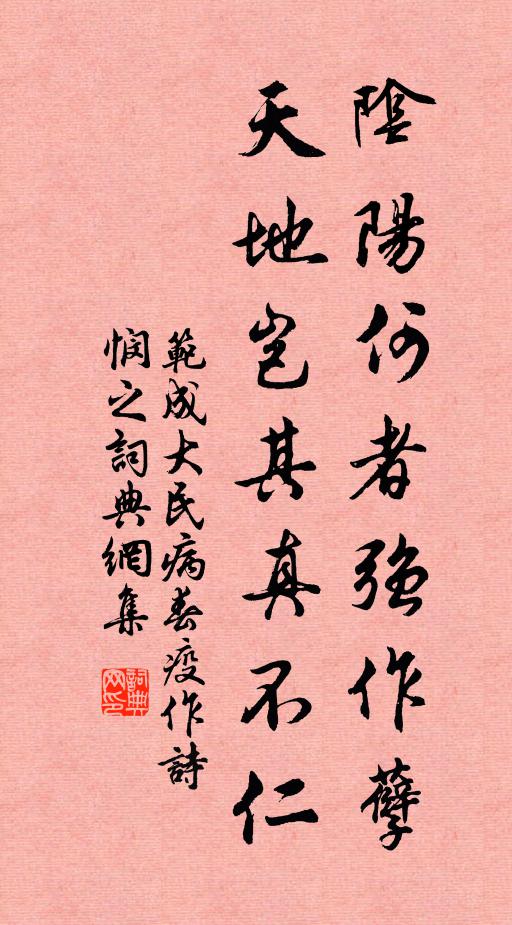 陰陽何者強作孽
天地豈其真不仁
範成大民病春疫作詩
憫之詞典網集
詞典网印